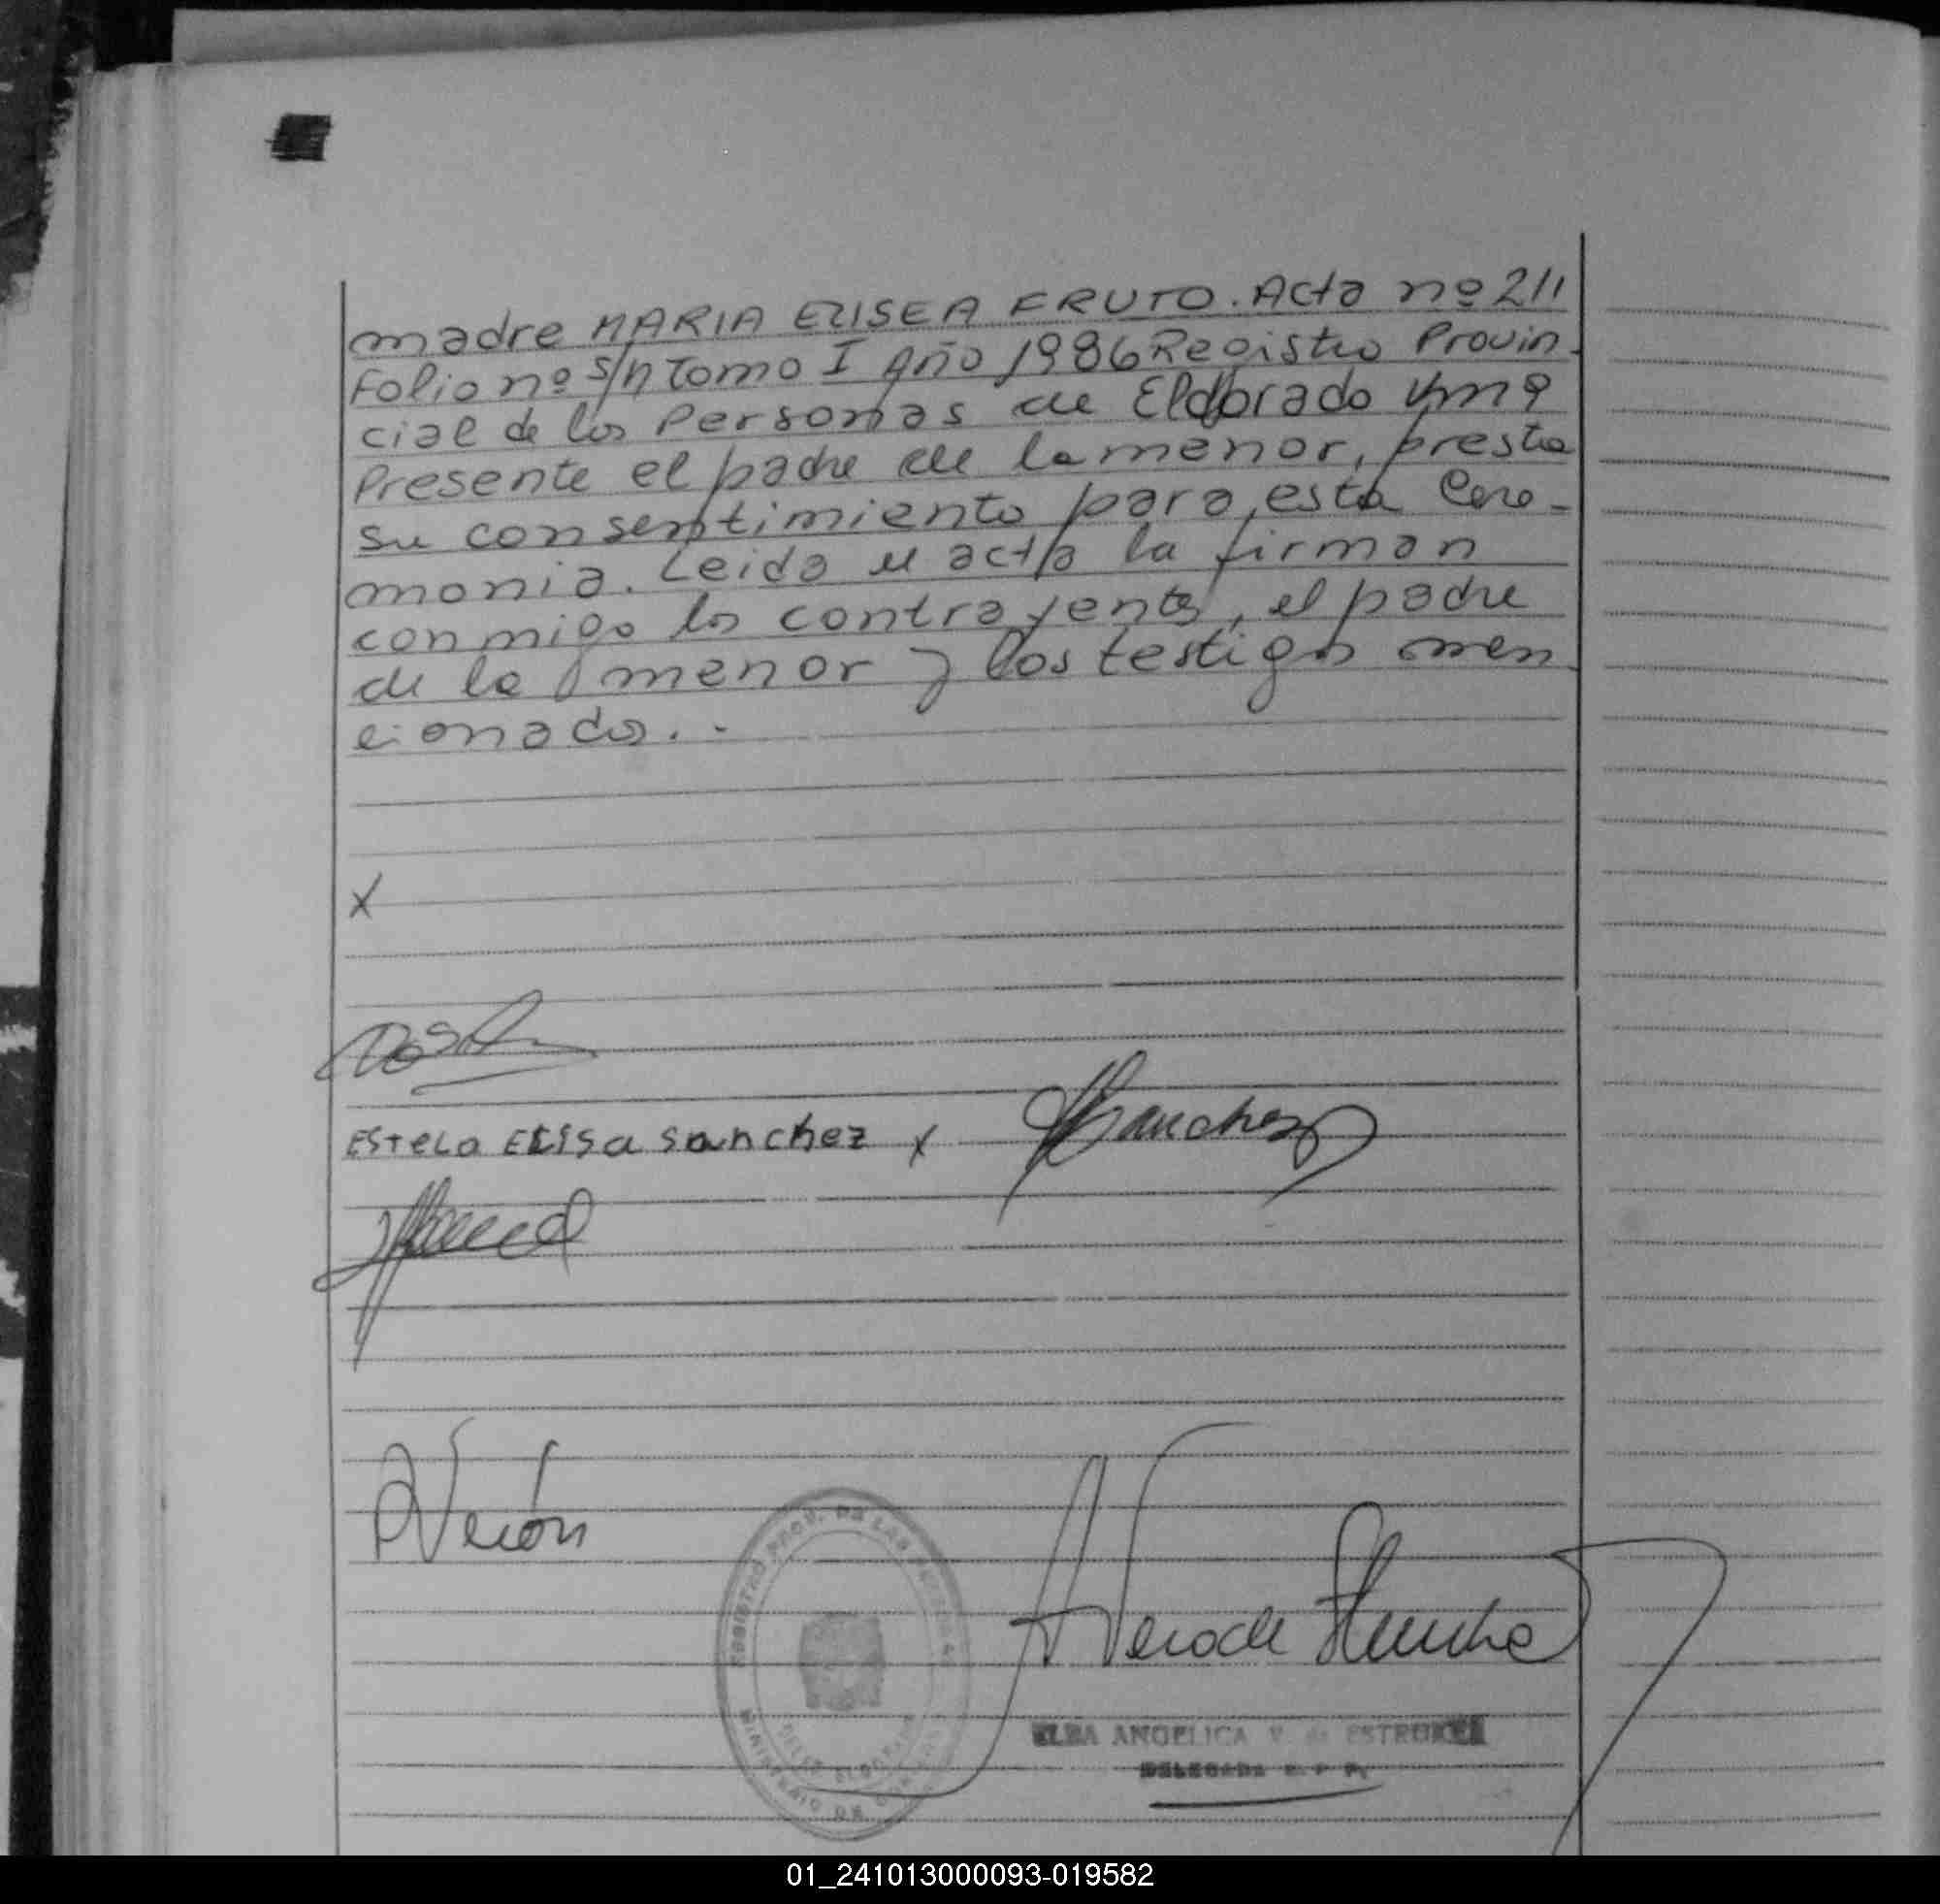 madre MARIA ELISEA FRUTO. Acta nº 211
Folio nº S/n Tomo I Año 1986 Registro Provin-
cial de las Personas de Eldorado
Presente el padre de la menor, presta
su consentimiento para esta Cere-
monia. Leida el acta la firman
conmigo los contrayentes, el padre
de la menor y los testigos men-
cionados. -
X
ESTELA ELISA Sanchez x Sanchez
Verón
REGISTRO PROV. DE LAS PERSONAS
MINISTERIO DE
ELBA ANGELICA V. de ESTRUKEL
DELEGADA R. P. P.
01_241013000093-019582